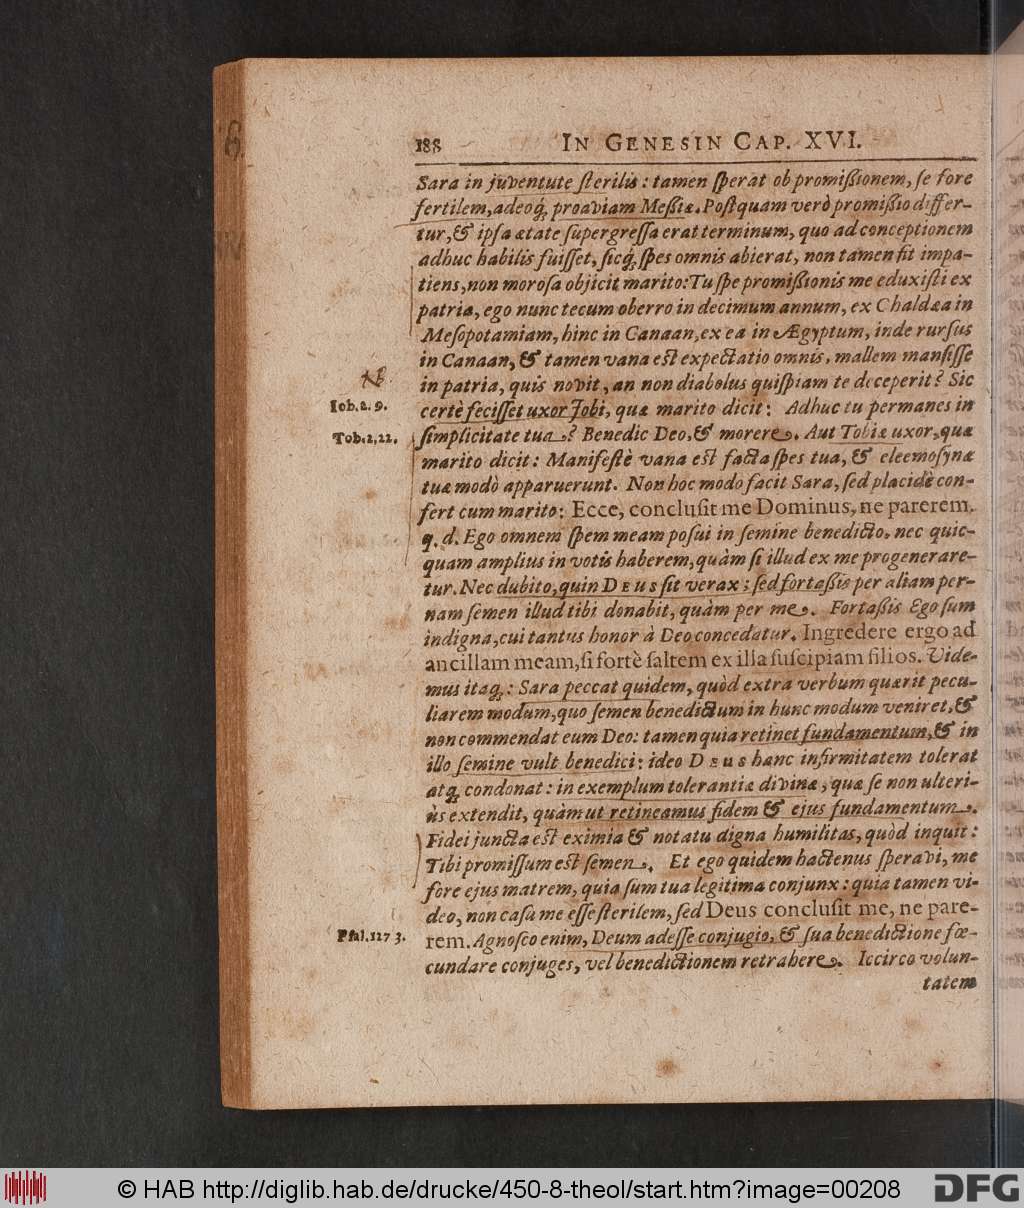 188 IN GENESIN CAP. XVI.
Sara in juventute ſterilis: tamen ſperat ob promißionem, ſe fore
fertilem, adeoq́; proaviam Meßiæ. Poſtquam verò promißio differ-
tur, & ipſa ætate ſupergreſſa erat terminum, quo ad conceptionem
adhuc habilis fuiſſet, ſicq́; ſpes omnis abierat, non tamen fit impa-
tiens, non moroſa objicit marito: Tu ſpe promißionis me eduxiſti ex
patria, ego nunc tecum oberro in decimum annum, ex Chaldæa in
Meſopotamiam, hinc in Canaan, ex ea in Ægyptum, inde rurſus
in Canaan, & tamen vana est expectatio omnis, mallem manſiſſe
NB
in patria, quis novit, an non diabolus quiſpiam te deceperit? Sic
Iob. 2. 9.
certè feciſſet uxor Jobi, quæ marito dicit: Adhuc tu permanes in
Tob. 2, 22.
ſimplicitate tua? Benedic Deo, & morere. Aut Tobiæ uxor, quæ
marito dicit: Manifeſtè vana est facta ſpes tua, & eleemoſynæ
tuæ modò apparuerunt. Non hoc modo facit Sara, ſed placidè con-
fert cum marito: Ecce, concluſit me Dominus, ne parerem.
q. d. Ego omnem ſpem meam poſui in ſemine benedicto, nec quic-
quam amplius in votis haberem, quàm ſi illud ex me progenerare-
tur. Nec dubito, quin DEUS ſit verax; ſed fortaßis per aliam per-
nam ſemen illud tibi donabit, quàm per me. Fortaßis Ego ſum
indigna, cui tantus honor à Deo concedatur. Ingredere ergo ad
ancillam meam, ſi fortè ſaltem ex illa ſuſcipiam filios. Vide-
mus itaq;: Sara peccat quidem, quòd extra verbum quærit pecu-
liarem modum, quo ſemen benedictum in hunc modum veniret, &
non commendat eum Deo: tamen quia retinet fundamentum, & in
illo ſemine vult benedici: ideo DEUS hanc infirmitatem tolerat
atq; condonat: in exemplum tolerantiæ divinæ, quæ ſe non ulteri-
ùs extendit, quàm ut retineamus fidem & ejus fundamentum.
Fidei juncta est eximia & notatu digna humilitas, quòd inquit:
Tibi promiſſum est ſemen. Et ego quidem hactenus ſperavi, me
fore ejus matrem, quia ſum tua legitima conjunx: quia tamen vi-
deo, non caſu me eſſe ſterilem, ſed Deus concluſit me, ne pare-
Pſal. 127 3.
rem. Agnoſco enim, Deum adeſſe conjugio, & ſua benedictione fœ-
cundare conjuges, vel benedictionem retrahere. Iccirco volun-
tatem
© HAB http://diglib.hab.de/drucke/450-8-theol/start.htm?image=00208
DFG